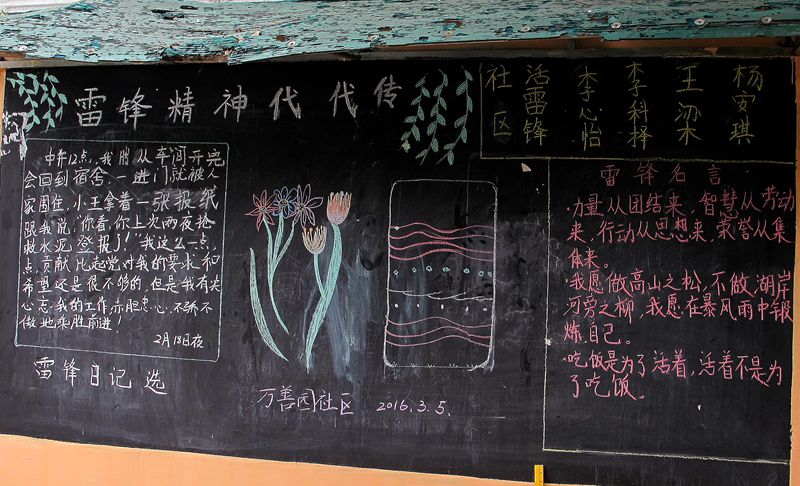 雷锋精神代代传
中午12点，我刚从车间开完
会回到宿舍，一进门就被人
家围住，小王拿着一张报纸
跟我说，“你看，你上次雨夜抢
救水泥登报了！”我这么一点
点贡献比起党对我的要求和
希望还是很不够的，但是我有决
心忘我的工作，赤胆忠心，不骄不
傲地乘胜前进！
2月18日夜
雷锋日记选
万善园社区 2016.3.5.
社区
活雷锋
李心怡
李科择
王梁
杨安琪
雷锋名言
·力量从团结来，智慧从劳动
来，行动从思想来，荣誉从集
体来。
·我愿做高山之松，不做湖岸
河旁之柳，我愿在暴风雨中锻
炼自己。
·吃饭是为了活着，活着不是为
了吃饭。